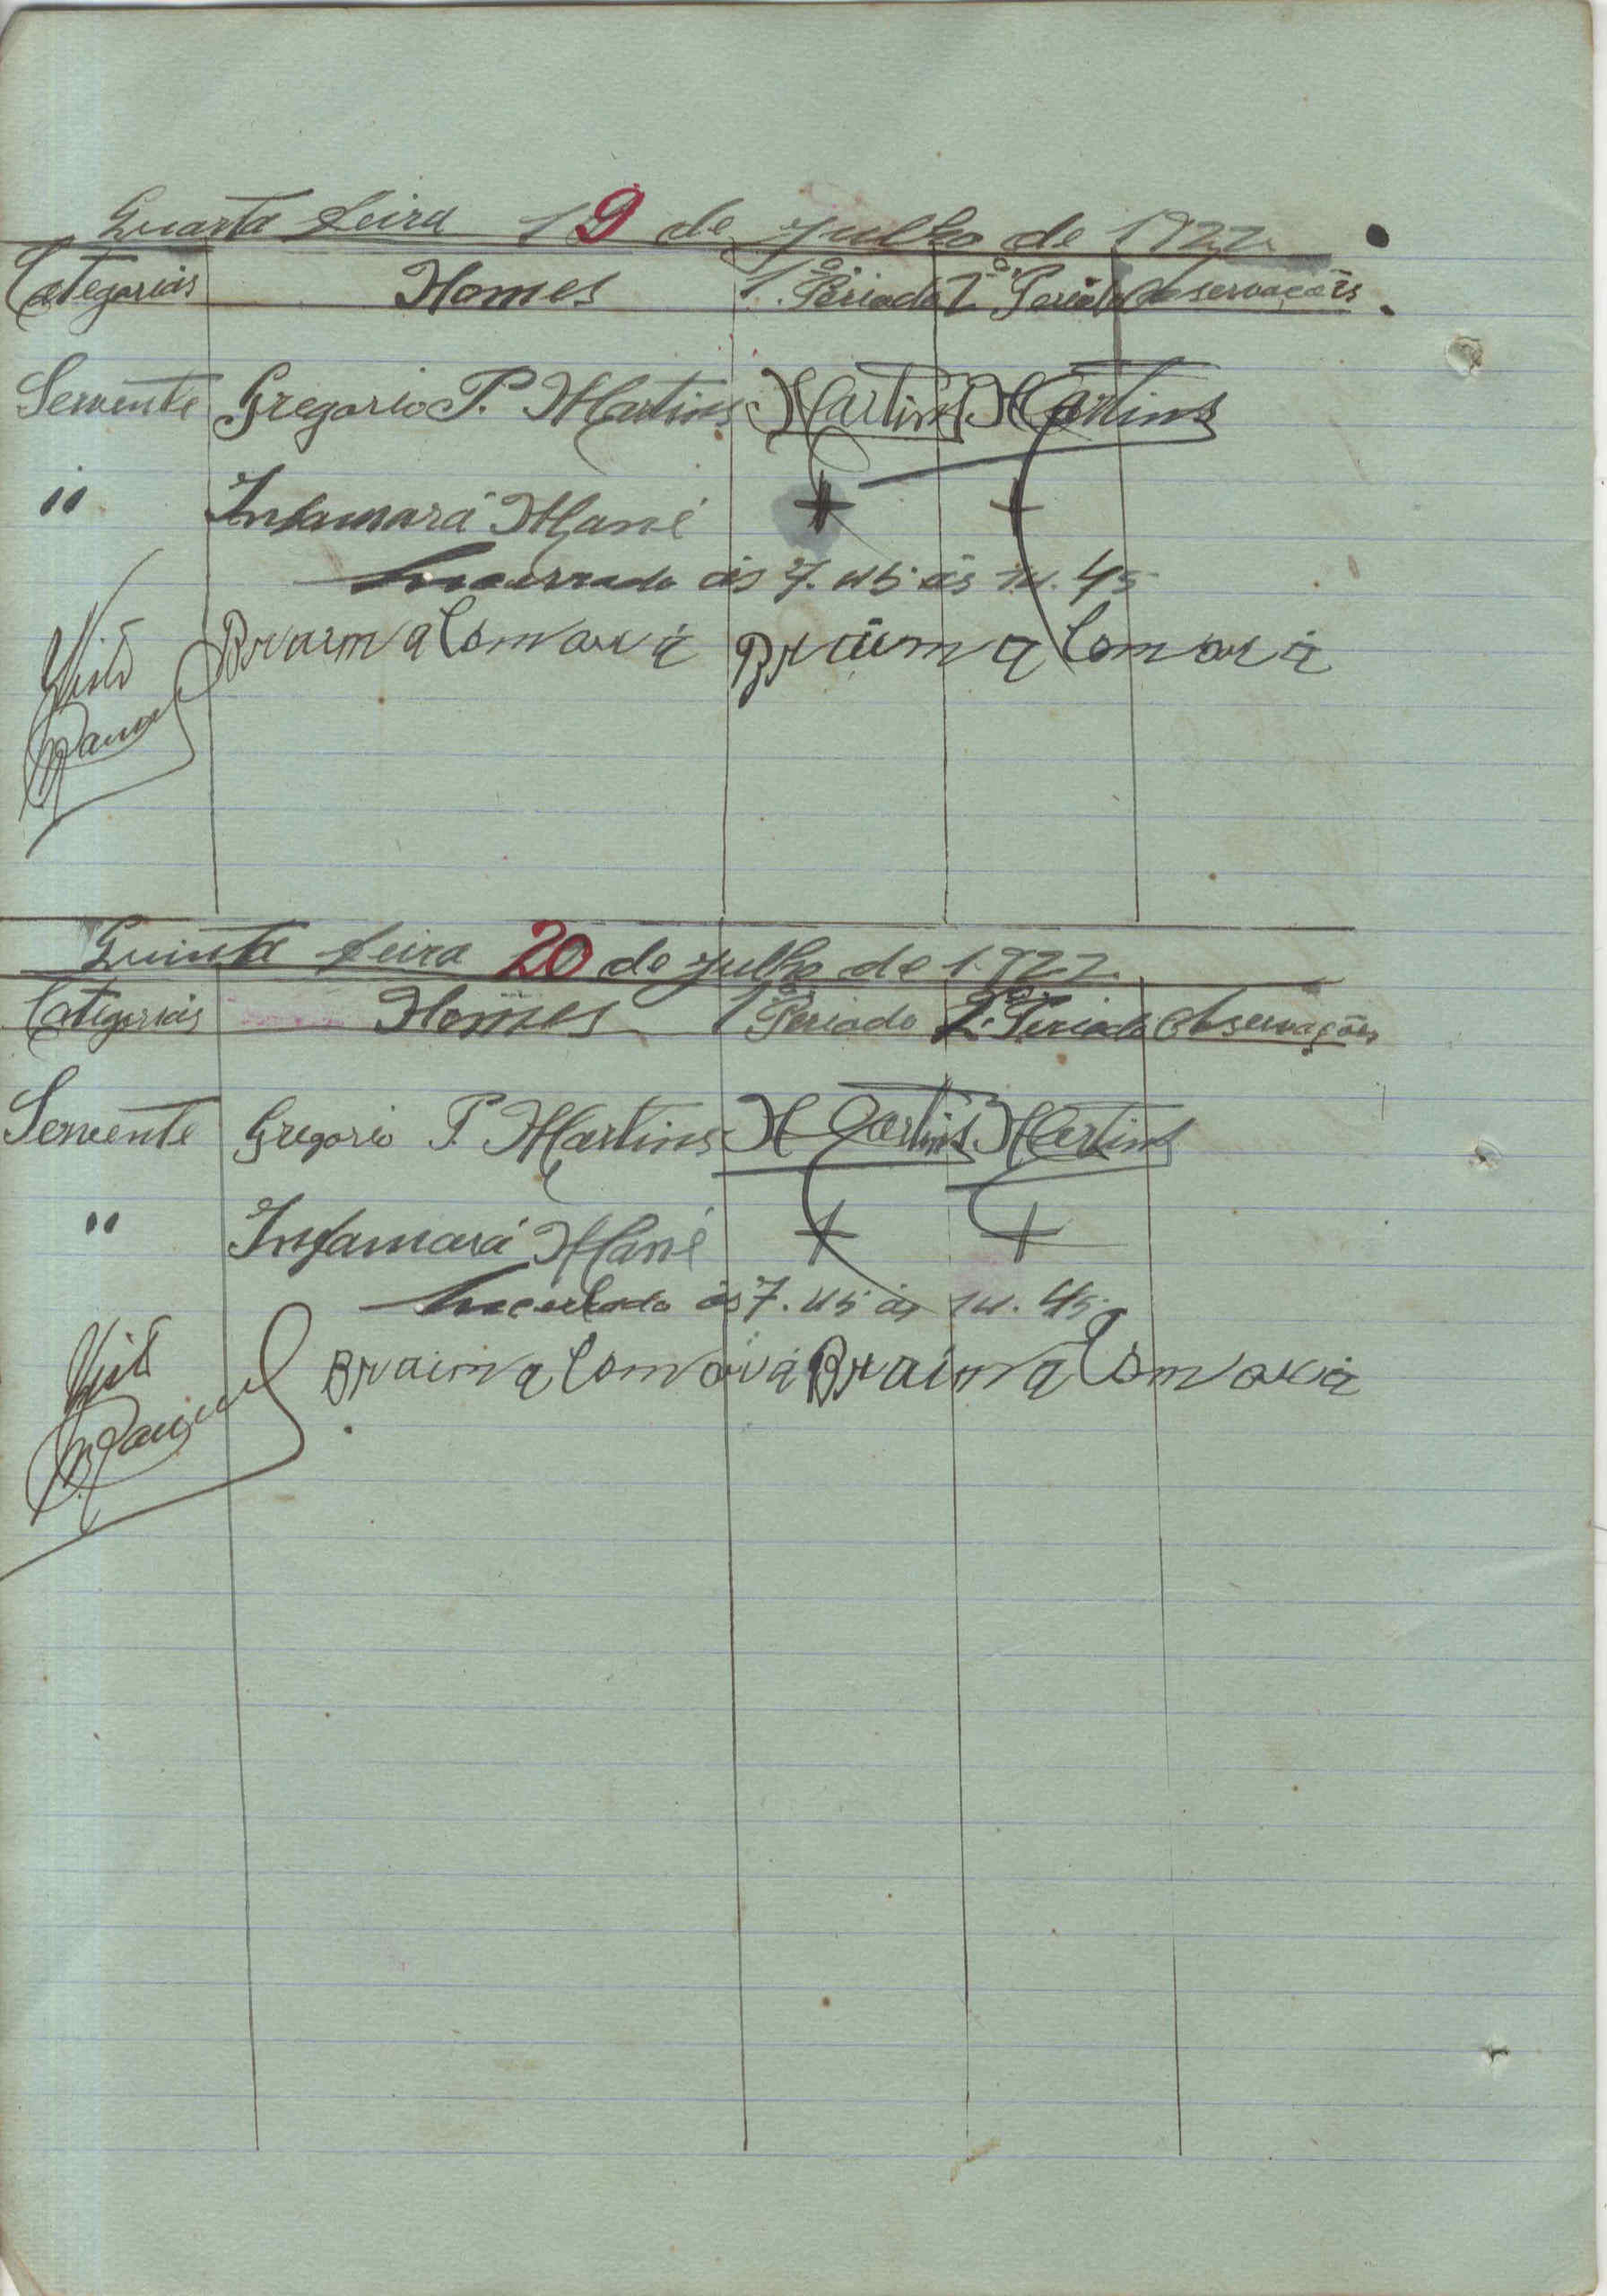 Quarta feira 19 de Julho de 1922
Categorias Nomes 1.º Periodo 2.º Periodo Observações
Servente Gregorio P. Martins Martins Martins
" Infamará Mané + +
Encerrado ás 7.45 ás 14.45
Braima Comará Braima Comará
Visto
Quinta feira 20 de Julho de 1922
Categorias Nomes 1.º Periodo 2.º Periodo Observações
Servente Gregorio P. Martins Martins Martins
" Infamará Mané + +
Encerrado ás 7.45 ás 14.45
Braima Comará Braima Comará
Visto